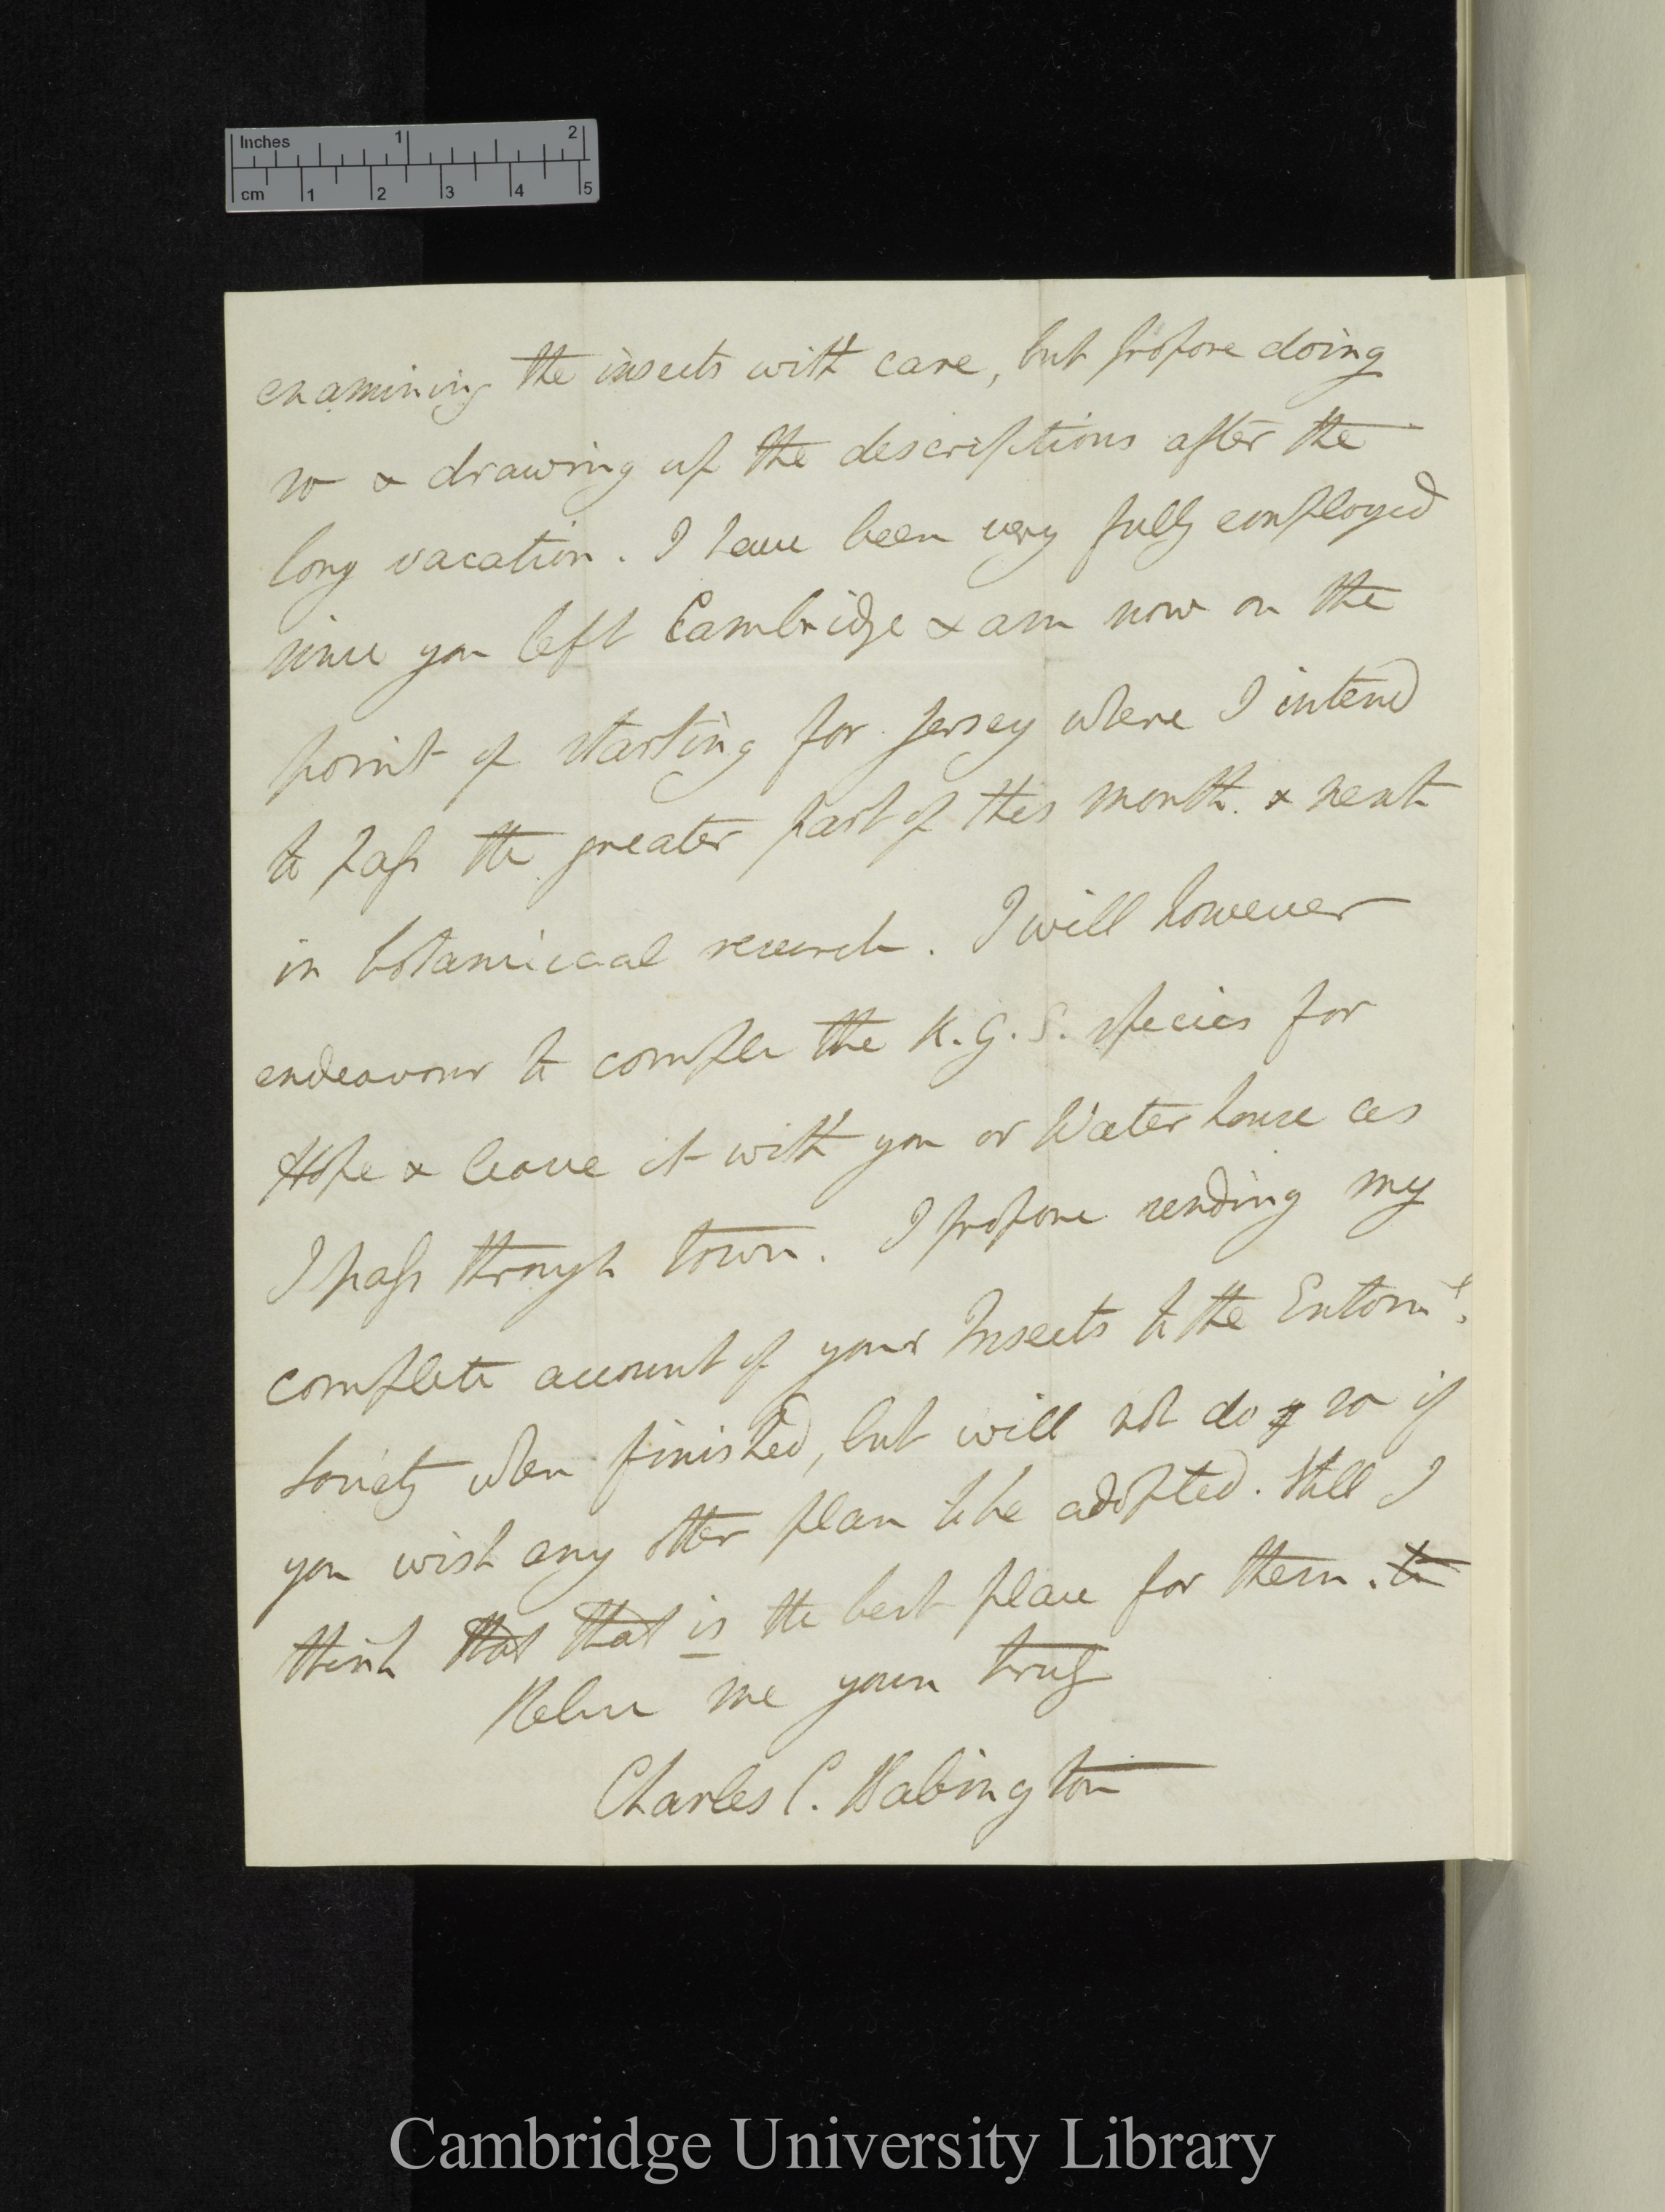 Inches 1 2
cm 1 2 3 4 5
examining the insects with care, but propose doing
so & drawing up the descriptions after the
long vacation. I have been very fully employed
since you left Cambridge & am now on the
point of starting for Jersey where I intend
to pass the greater part of this month & next
in botanical research. I will however
endeavour to comple the K.G.S. species for
Hope & leave it with you or Waterhouse as
I pass through town. I propose sending my
complete account of your Insects to the Entoml.
Society when finished, but will not do so if
you wish any other plan to be adopted. Still I
think that that is the best place for them. to
Believe me yours truly
Charles C. Babington
Cambridge University Library